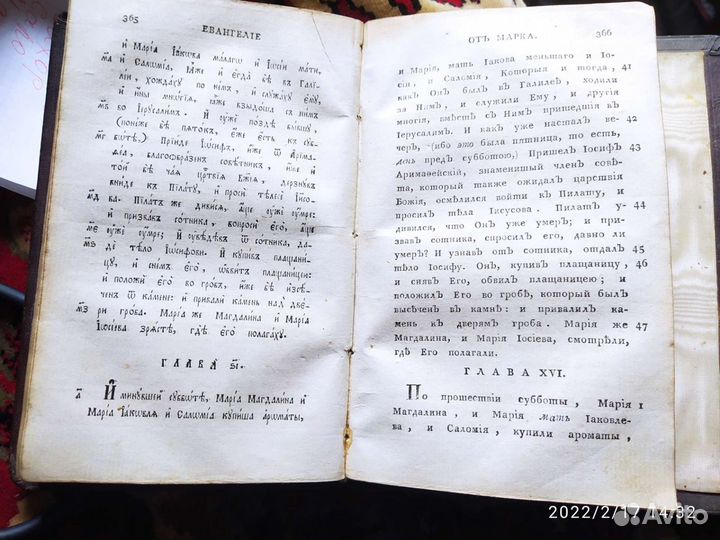 365
ЕВАНГЕЛІЕ
и҆ Марі́а І҆а́кѡва ма́лагѡ и҆ І҆ѡсі́и ма́ти,
м҃а и҆ Салѡмі́а, И҆̀же и҆ є҆гда̀ бѣ̀ въ Галі-
ле́и, хожда́ху по не́мъ, и҆ слꙋжа́хꙋ є҆мꙋ̀,
и҆ и҆́ны мнѡ́гїѧ, ꙗ҆̀же взыдо́ша съ ни́мъ
м҃в во І҆ерⷭ҇ли́мъ. И҆ ᲂу҆жѐ по́здѣ бы́вшꙋ
(поне́же бѣ̀ пѧто́къ, є҆́же є҆́сть къ сꙋб-
м҃г бѡ́тѣ,) Прїи́де І҆ѡ́сифъ, и҆́же ѿ А҆рїма-
ѳе́а, благоѡбра́зенъ совѣ́тникъ, и҆́же и҆
то́й бѣ̀ ча́ѧ црⷭ҇твїѧ Бж҃їѧ, дерзнꙋ́въ
вни́де къ Пїла́тꙋ, и҆ просѝ тѣлесѐ І҆исо-
м҃д ва. Пїла́тъ же диви́сѧ, а҆́ще ᲂу҆жѐ ᲂу҆́мре:
и҆ призва́въ со́тника, вопросѝ є҆го̀, а҆́ще
м҃е ᲂу҆жѐ ᲂу҆́мре: И҆ ᲂу҆вѣ́дѣвъ ѿ со́тника, да-
м҃ѕ дѐ тѣ́ло І҆ѡ́сифови. И҆ кꙋпи́въ плащани́-
цꙋ, и҆ сне́мъ є҆го̀, ѡ҆бви́тъ плащани́цею:
и҆ положѝ є҆го̀ во гро́бъ, и҆́же бѣ̀ и҆зсѣ́-
ченъ ѿ ка́мене: и҆ привалѝ ка́мень над̾ две́-
м҃з ри гро́ба. Марі́а же Магдали́на и҆ Марі́а
І҆ѡсі́ева зрѧ́стѣ, гдѣ̀ є҆го̀ полага́хꙋ.
ГЛАВА ѕ҃і.
а҃ И҆ минꙋ́вшей сꙋббѡ́тѣ, Марі́а Магдали́на и҆
Марі́а І҆а́кѡвлѧ и҆ Салѡмі́а кꙋпи́ша а҆рѡма́ты,
ОТЪ МАРКА.
366
и Марія, мать Іакова меньшаго и Іо-
сіи, и Саломія, Которыя и тогда, 41
какъ Онъ былъ въ Галилеѣ, ходили
за Нимъ, и служили Ему, и другія
многія, вмѣстѣ съ Нимъ пришедшія въ
Іерусалимъ. И какъ уже насталъ ве- 42
черъ, (ибо это была пятница, то есть,
день предъ субботою,) Пришелъ Іосифъ 43
Аримаѳейскій, знаменитый членъ совѣ-
та, который также ожидалъ царствія
Божія, осмѣлился войти къ Пилату, и
просилъ тѣла Іисусова. Пилатъ у- 44
дивился, что Онъ уже умеръ; и при-
звавъ сотника, спросилъ его, давно ли
умеръ? И узнавъ отъ сотника, отдалъ 45
тѣло Іосифу. Онъ, купивъ плащаницу, 46
и снявъ Его, обвилъ плащаницею; и
положилъ Его во гробѣ, который былъ
высѣченъ въ камнѣ: и привалилъ ка-
мень къ дверямъ гроба. Марія же 47
Магдалина, и Марія Іосіева, смотрѣли,
гдѣ Его полагали.
ГЛАВА XVI.
По прошествіи субботы, Марія 1
Магдалина, и Марія мать Іаковле-
ва, и Саломія, купили ароматы,
2022/2/17 14:32
Avito